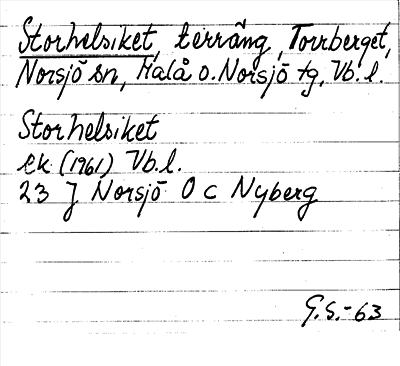 Storhelsiket, terräng, Torrberget,
Norsjö sn, Malå o. Norsjö tg, Vb. l.
Storhelsiket
ek (1961) Vb. l.
23 J Norsjö O c Nyberg
G.S.-63